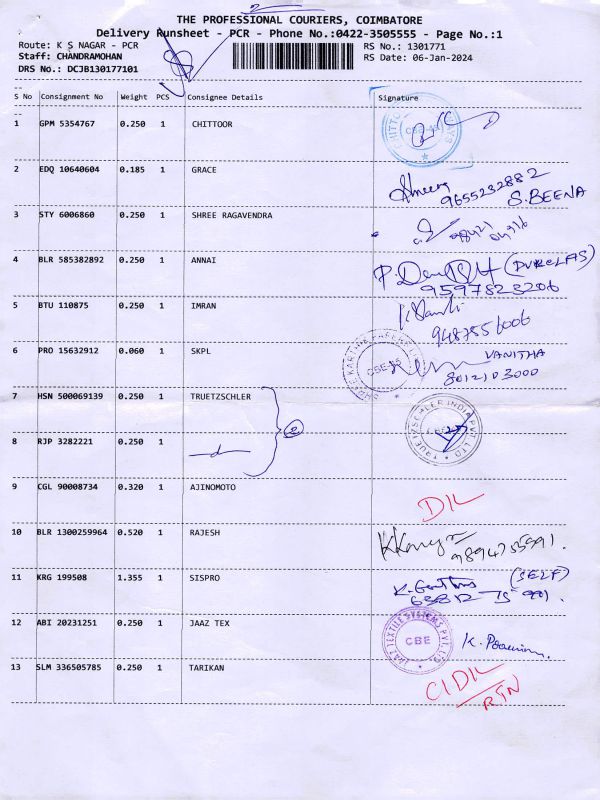 THE PROFESSIONAL COURIERS, COIMBATORE
Delivery Runsheet - PCR - Phone No.:0422-3505555 - Page No.:1
Route: K S NAGAR - PCR RS No.: 1301771
Staff: CHANDRAMOHAN RS Date: 06-Jan-2024
DRS No.: DCJB130177101
S No Consignment No Weight PCS Consignee Details Signature
1 GPM 5354767 0.250 1 CHITTOOR
2 EDQ 10640604 0.185 1 GRACE
9655232882
S.BEENA
3 STY 6006860 0.250 1 SHREE RAGAVENDRA
4 BLR 585382892 0.250 1 ANNAI
9597823206
5 BTU 110875 0.250 1 IMRAN
9487556006
6 PRO 15632912 0.060 1 SKPL
CBE-45 VANITHA
8012103000
7 HSN 500069139 0.250 1 TRUETZSCHLER
TRUETZSCHLER INDIA PVT. LTD
8 RJP 3282221 0.250 1
9 CGL 90008734 0.320 1 AJINOMOTO
DIL
10 BLR 1300259964 0.520 1 RAJESH
11 KRG 199508 1.355 1 SISPRO
(SELF)
12 ABI 20231251 0.250 1 JAAZ TEX
JAAZ TEXTILE SYSTEMS PVT. LTD.
CBE
13 SLM 336505785 0.250 1 TARIKAN
C/DIL
RTN